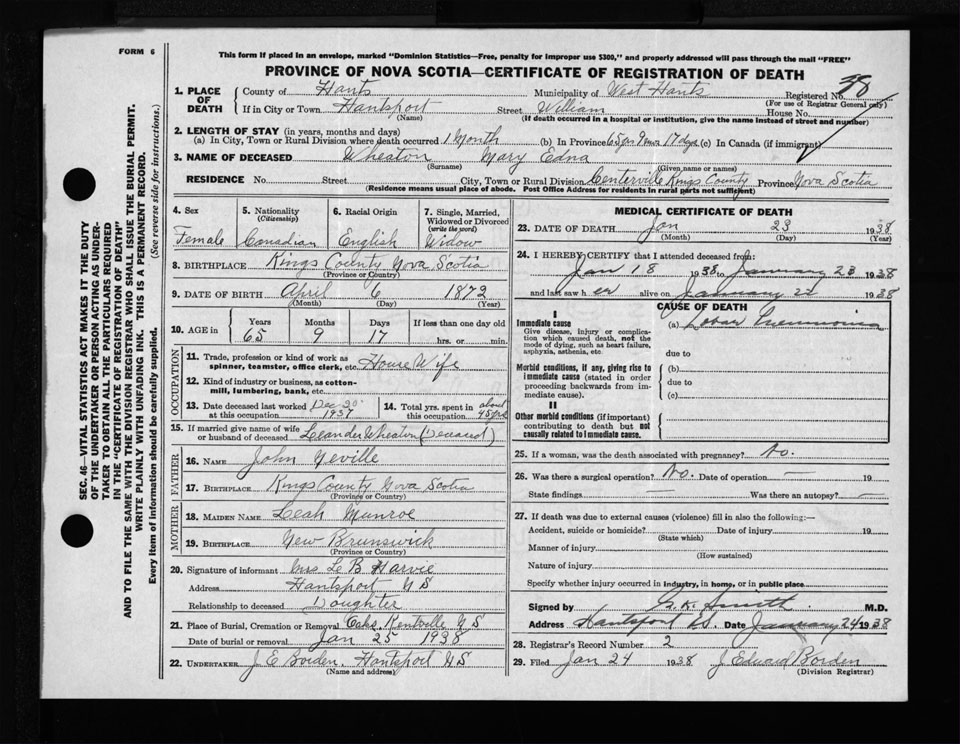 FORM 6
This form if placed in an envelope, marked "Dominion Statistics—Free, penalty for improper use $300," and properly addressed will pass through the mail "FREE"
PROVINCE OF NOVA SCOTIA—CERTIFICATE OF REGISTRATION OF DEATH
38
1. PLACE OF DEATH County of Hants Municipality of West Hants Registered No.
(For use of Registrar General only)
If in City or Town Hantsport Street William House No.
(Name) (If death occurred in a hospital or institution, give the name instead of street and number)
2. LENGTH OF STAY (in years, months and days)
(a) In City, Town or Rural Division where death occurred 1 Month (b) In Province 65 yrs 9 mos 17 dys (c) In Canada (if immigrant)
3. NAME OF DECEASED Wheaton Mary Edna
(Surname) (Given name or names)
RESIDENCE No. Street City, Town or Rural Division Centerville Kings County Province Nova Scotia
(Residence means usual place of abode. Post Office Address for residents in rural parts not sufficient)
4. Sex Female
5. Nationality (Citizenship) Canadian
6. Racial Origin English
7. Single, Married, Widowed or Divorced (write the word) Widow
8. BIRTHPLACE Kings County Nova Scotia
(Province or Country)
9. DATE OF BIRTH April 6 1872
(Month) (Day) (Year)
10. AGE in Years Months Days If less than one day old
65 9 17 hrs. or min.
OCCUPATION
11. Trade, profession or kind of work as spinner, teamster, office clerk, etc. House Wife
12. Kind of industry or business, as cotton-mill, lumbering, bank, etc.
13. Date deceased last worked at this occupation Dec 20 1937
14. Total yrs. spent in this occupation about 45 yrs
15. If married give name of wife or husband of deceased Leander Wheaton (Deceased)
FATHER
16. NAME John Neville
17. BIRTHPLACE Kings County Nova Scotia
(Province or Country)
MOTHER
18. MAIDEN NAME Leah Munroe
19. BIRTHPLACE New Brunswick
(Province or Country)
20. Signature of informant Mrs L B Harvie
Address Hantsport N S
Relationship to deceased Daughter
21. Place of Burial, Cremation or Removal Oaks. Kentville N S
Date of burial or removal Jan 25 1938
22. UNDERTAKER J E Borden. Hantsport N S
(Name and address)
MEDICAL CERTIFICATE OF DEATH
23. DATE OF DEATH Jan 23 1938
(Month) (Day) (Year)
24. I HEREBY CERTIFY that I attended deceased from:
Jan 18 1938 to January 23 1938
and last saw her alive on January 22 1938
CAUSE OF DEATH
I
Immediate cause
Give disease, injury or complication which caused death, not the mode of dying, such as heart failure, asphyxia, asthenia, etc.
(a) Lobar Pneumonia
due to
Morbid conditions, if any, giving rise to immediate cause (stated in order proceeding backwards from immediate cause).
(b)
due to
(c)
II
Other morbid conditions (if important) contributing to death but not causally related to immediate cause.
25. If a woman, was the death associated with pregnancy? No.
26. Was there a surgical operation? No. Date of operation 19
State findings — Was there an autopsy? —
27. If death was due to external causes (violence) fill in also the following:—
Accident, suicide or homicide? Date of injury 19
(State which)
Manner of injury
(How sustained)
Nature of injury
Specify whether injury occurred in industry, in home, or in public place
Signed by G. K. Smith M.D.
Address Hantsport N.S. Date January 24 1938
28. Registrar's Record Number 2
29. Filed Jan 24 1938 J Edward Borden
(Division Registrar)
SEC. 46—VITAL STATISTICS ACT MAKES IT THE DUTY
OF THE UNDERTAKER OR PERSON ACTING AS UNDER-
TAKER TO OBTAIN ALL THE PARTICULARS REQUIRED
IN THE "CERTIFICATE OF REGISTRATION OF DEATH"
AND TO FILE THE SAME WITH THE DIVISION REGISTRAR WHO SHALL ISSUE THE BURIAL PERMIT.
WRITE PLAINLY WITH UNFADING INK. THIS IS A PERMANENT RECORD.
Every item of information should be carefully supplied. (See reverse side for instructions.)